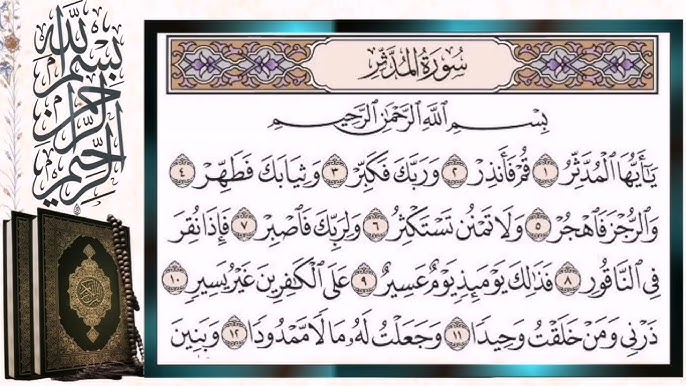 بسم الله الرحمن الرحيم
سُورَةُ الْمُدَّثِّر
بِسْمِ ٱللَّهِ ٱلرَّحْمَٰنِ ٱلرَّحِيمِ
يَٰٓأَيُّهَا ٱلْمُدَّثِّرُ ١ قُمْ فَأَنذِرْ ٢ وَرَبَّكَ فَكَبِّرْ ٣ وَثِيَابَكَ فَطَهِّرْ ٤
وَٱلرُّجْزَ فَٱهْجُرْ ٥ وَلَا تَمْنُن تَسْتَكْثِرُ ٦ وَلِرَبِّكَ فَٱصْبِرْ ٧ فَإِذَا نُقِرَ
فِى ٱلنَّاقُورِ ٨ فَذَٰلِكَ يَوْمَئِذٍ يَوْمٌ عَسِيرٌ ٩ عَلَى ٱلْكَٰفِرِينَ غَيْرُ يَسِيرٍ ١٠
ذَرْنِى وَمَنْ خَلَقْتُ وَحِيدًا ١١ وَجَعَلْتُ لَهُۥ مَالًا مَّمْدُودًا ١٢ وَبَنِينَ